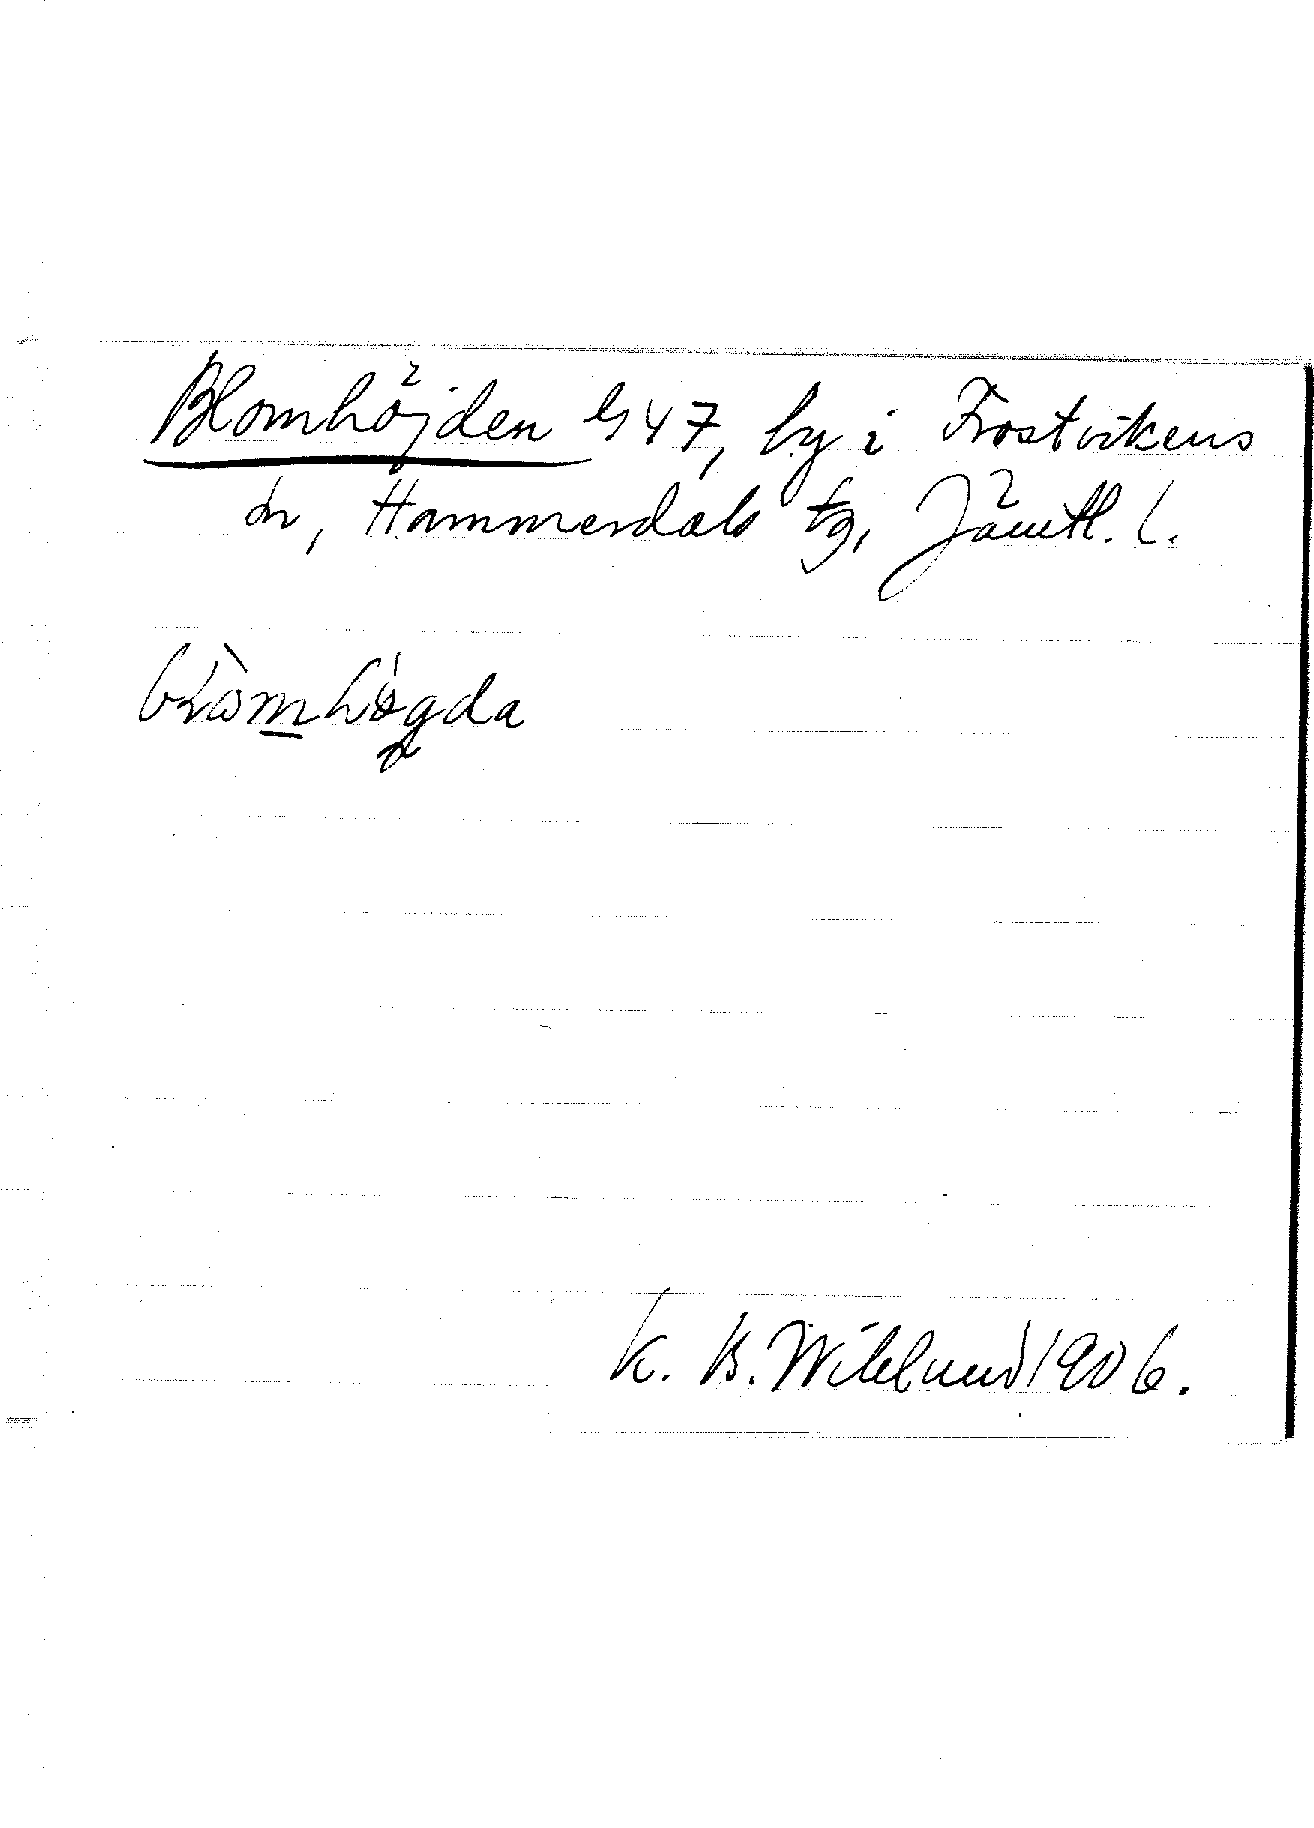 Blomhöjden G47, by i Frostvikens
sn, Hammerdals tg, Jämtl. l.
blòmhø̀gda
K. B. Wiklund 1906.